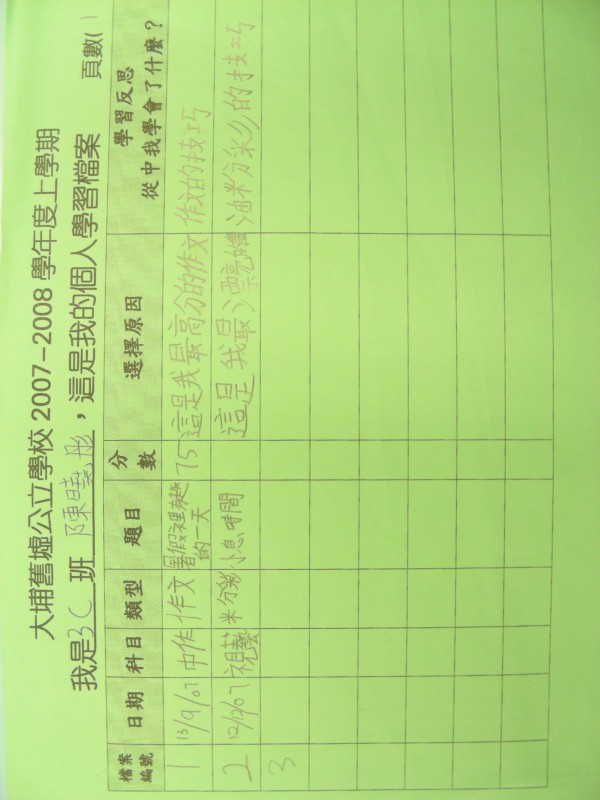 大埔舊墟公立學校 2007-2008 學年度上學期
我是3C班陳曉彤，這是我的個人學習檔案 頁數( )
檔案編號 日期 科目 類型 題目 分數 選擇原因 學習反思 從中我學會了什麼？
1 13/9/07 中作 作文 暑假裡 的一天 75 這是我最高分的作文 作文的技巧
2 12/12/07 視藝 粉彩 小息時間 這是我最漂亮的 油粉彩的技巧
3